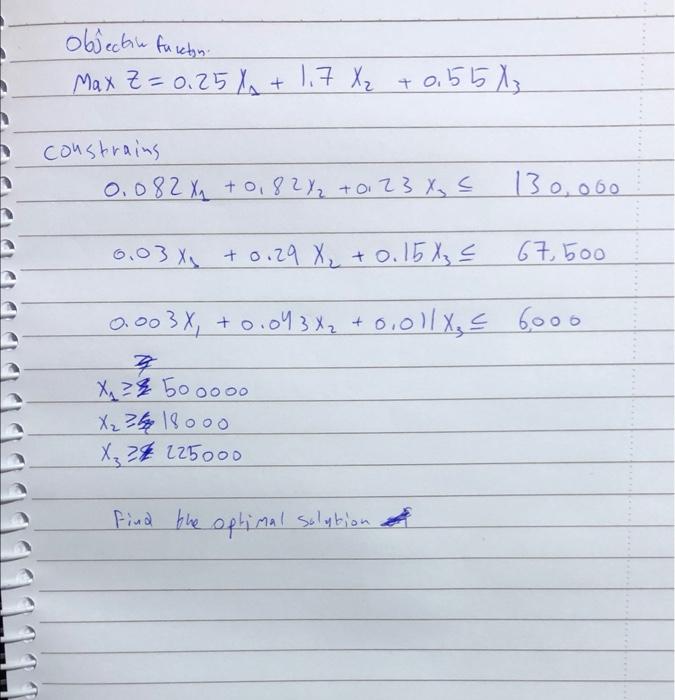 Objective function.
Max Z = 0.25 X₁ + 1.7 X₂ + 0.55 X₃
constrains
0.082 X₁ + 0.82 X₂ + 0.23 X₃ ≤ 130,000
0.03 X₁ + 0.29 X₂ + 0.15 X₃ ≤ 67,500
0.003 X₁ + 0.043 X₂ + 0.011 X₃ ≤ 6,000
X₁ ≥ 500000
X₂ ≥ 18000
X₃ ≥ 225000
Find the optimal solution